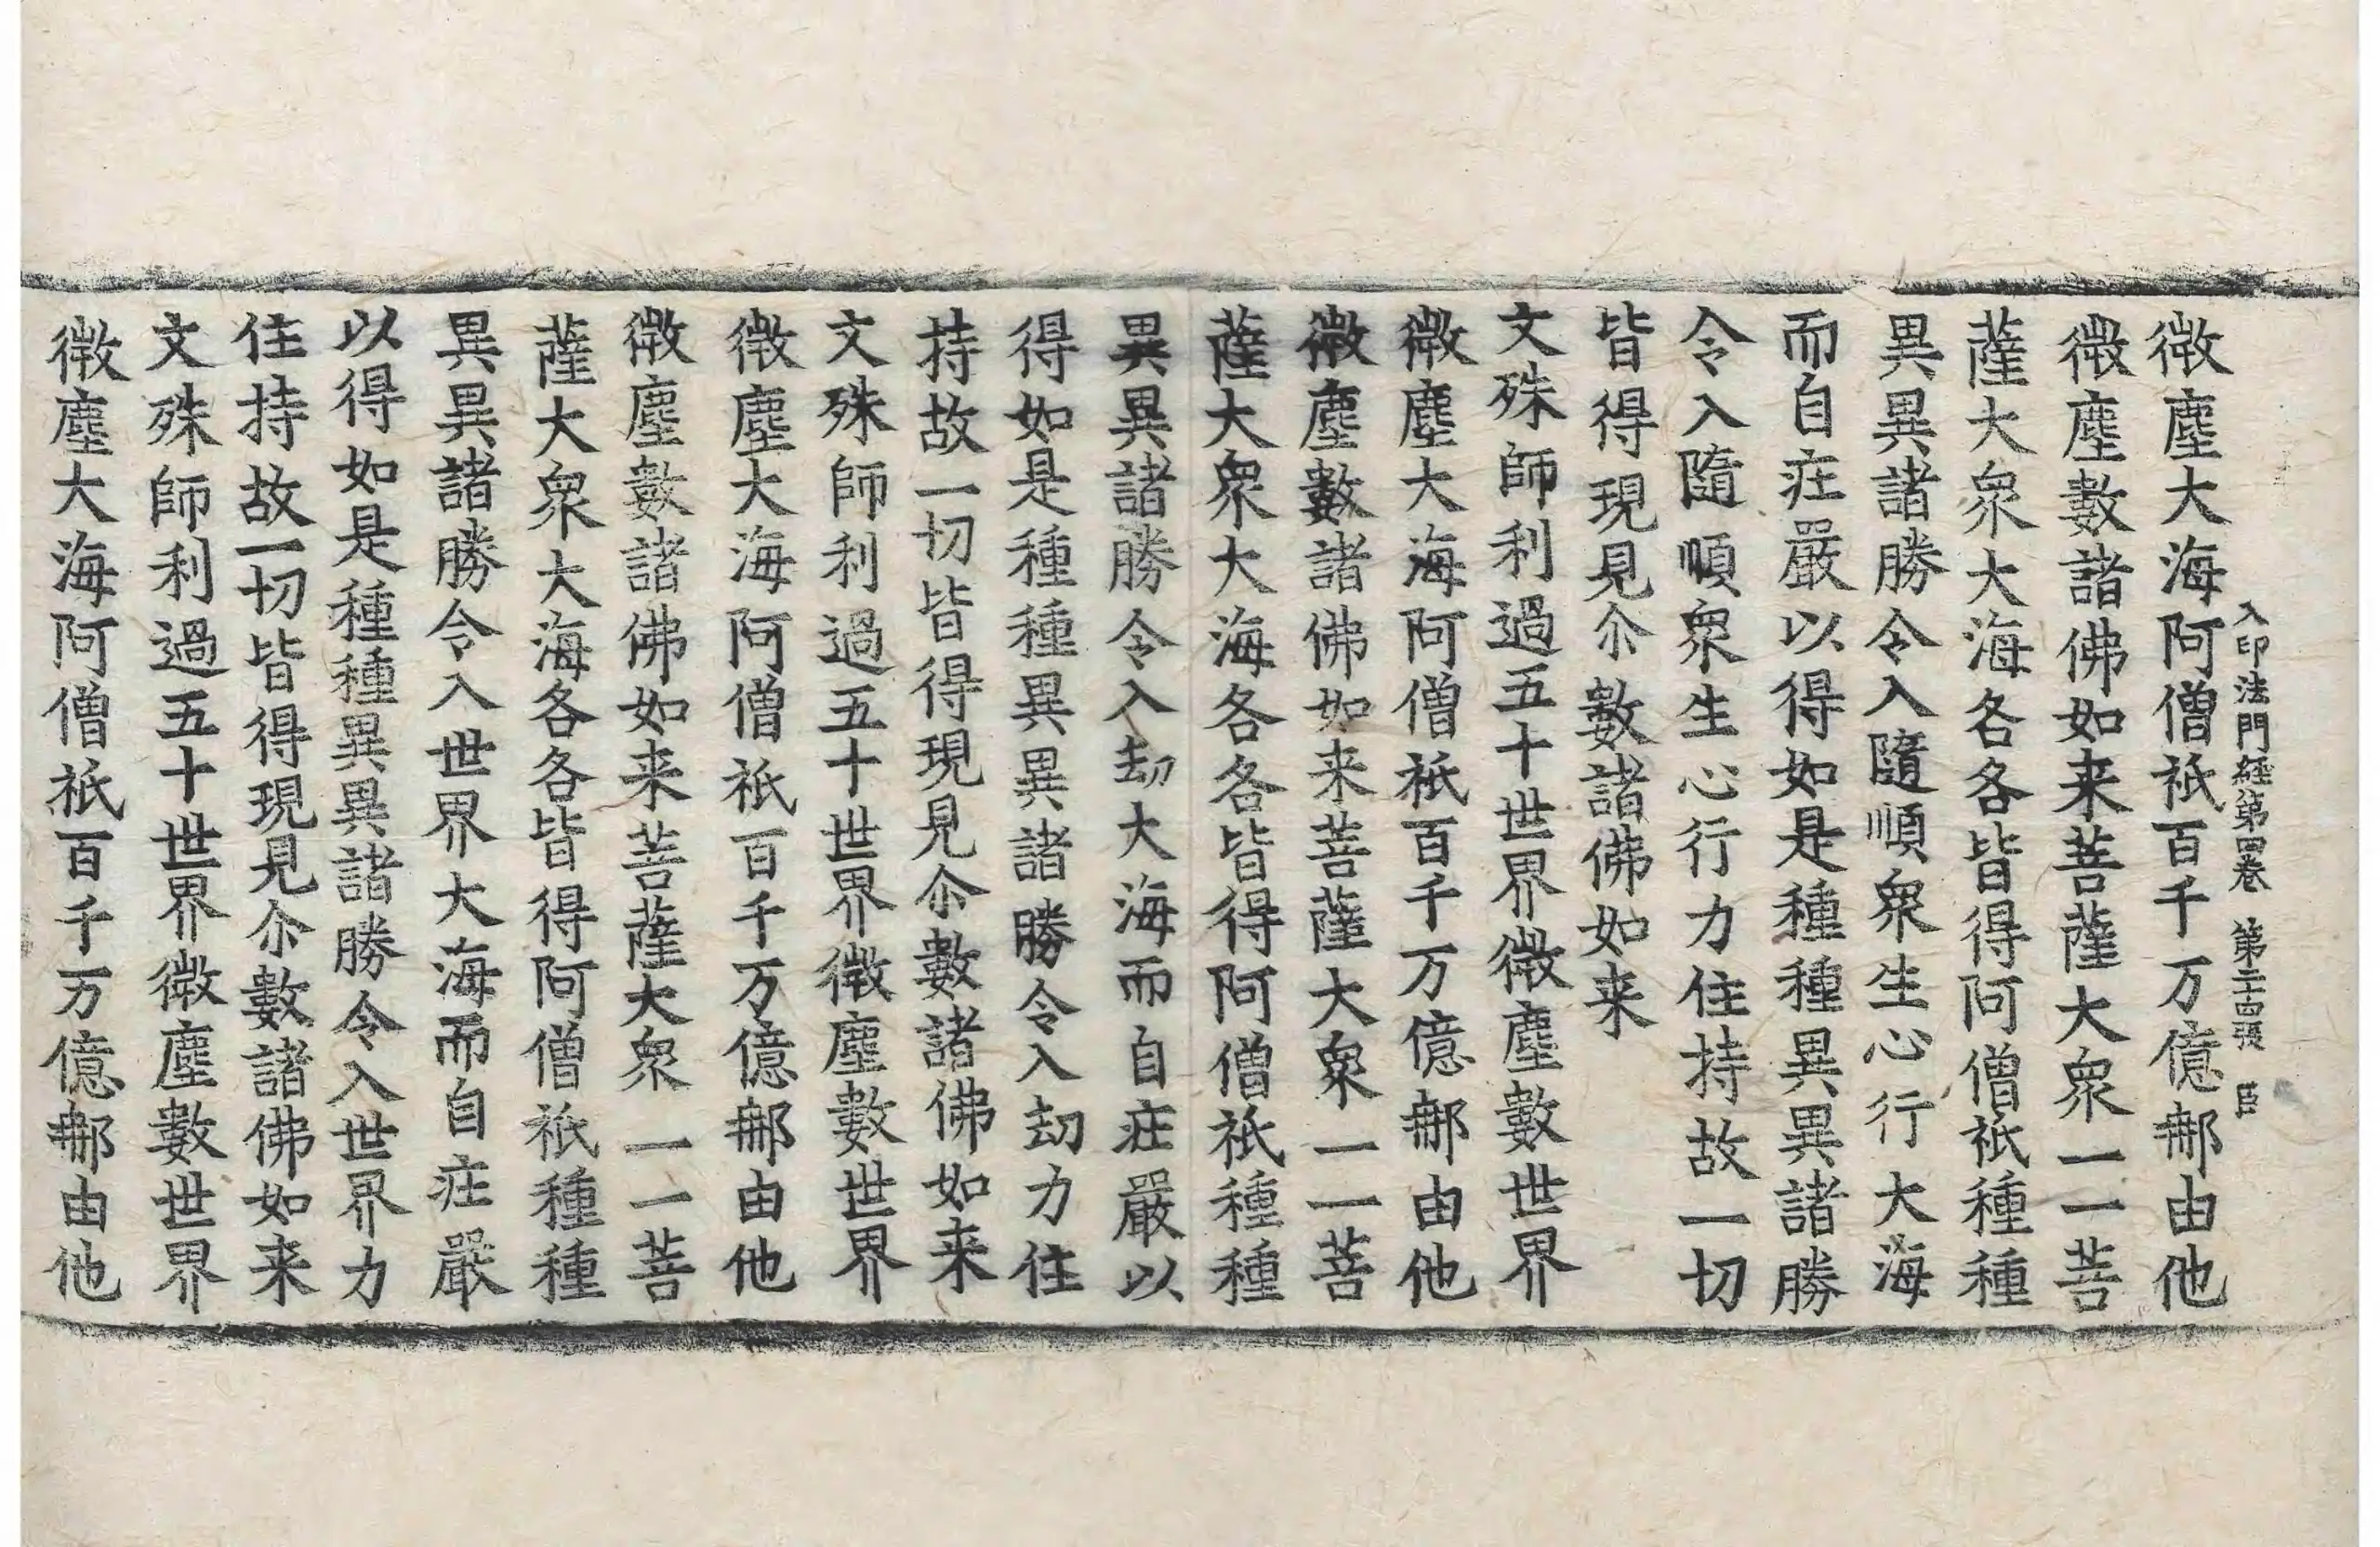 入印法門經第四卷 第二十四張 臣
微塵大海阿僧祇百千万億那由他
微塵數諸佛如来菩薩大衆一一菩
薩大衆大海各各皆得阿僧祇種種
異異諸勝令入隨順衆生心行大海
而自莊嚴以得如是種種異異諸勝
令入隨順衆生心行力住持故一切
皆得現見尒數諸佛如来
文殊師利過五十世界微塵數世界
微塵大海阿僧祇百千万億那由他
微塵數諸佛如来菩薩大衆一一菩
薩大衆大海各各皆得阿僧祇種種
異異諸勝令入劫大海而自莊嚴以
得如是種種異異諸勝令入劫力住
持故一切皆得現見尒數諸佛如来
文殊師利過五十世界微塵數世界
微塵大海阿僧祇百千万億那由他
微塵數諸佛如来菩薩大衆一一菩
薩大衆大海各各皆得阿僧祇種種
異異諸勝令入世界大海而自莊嚴
以得如是種種異異諸勝令入世界力
住持故一切皆得現見尒數諸佛如来
文殊師利過五十世界微塵數世界
微塵大海阿僧祇百千万億那由他